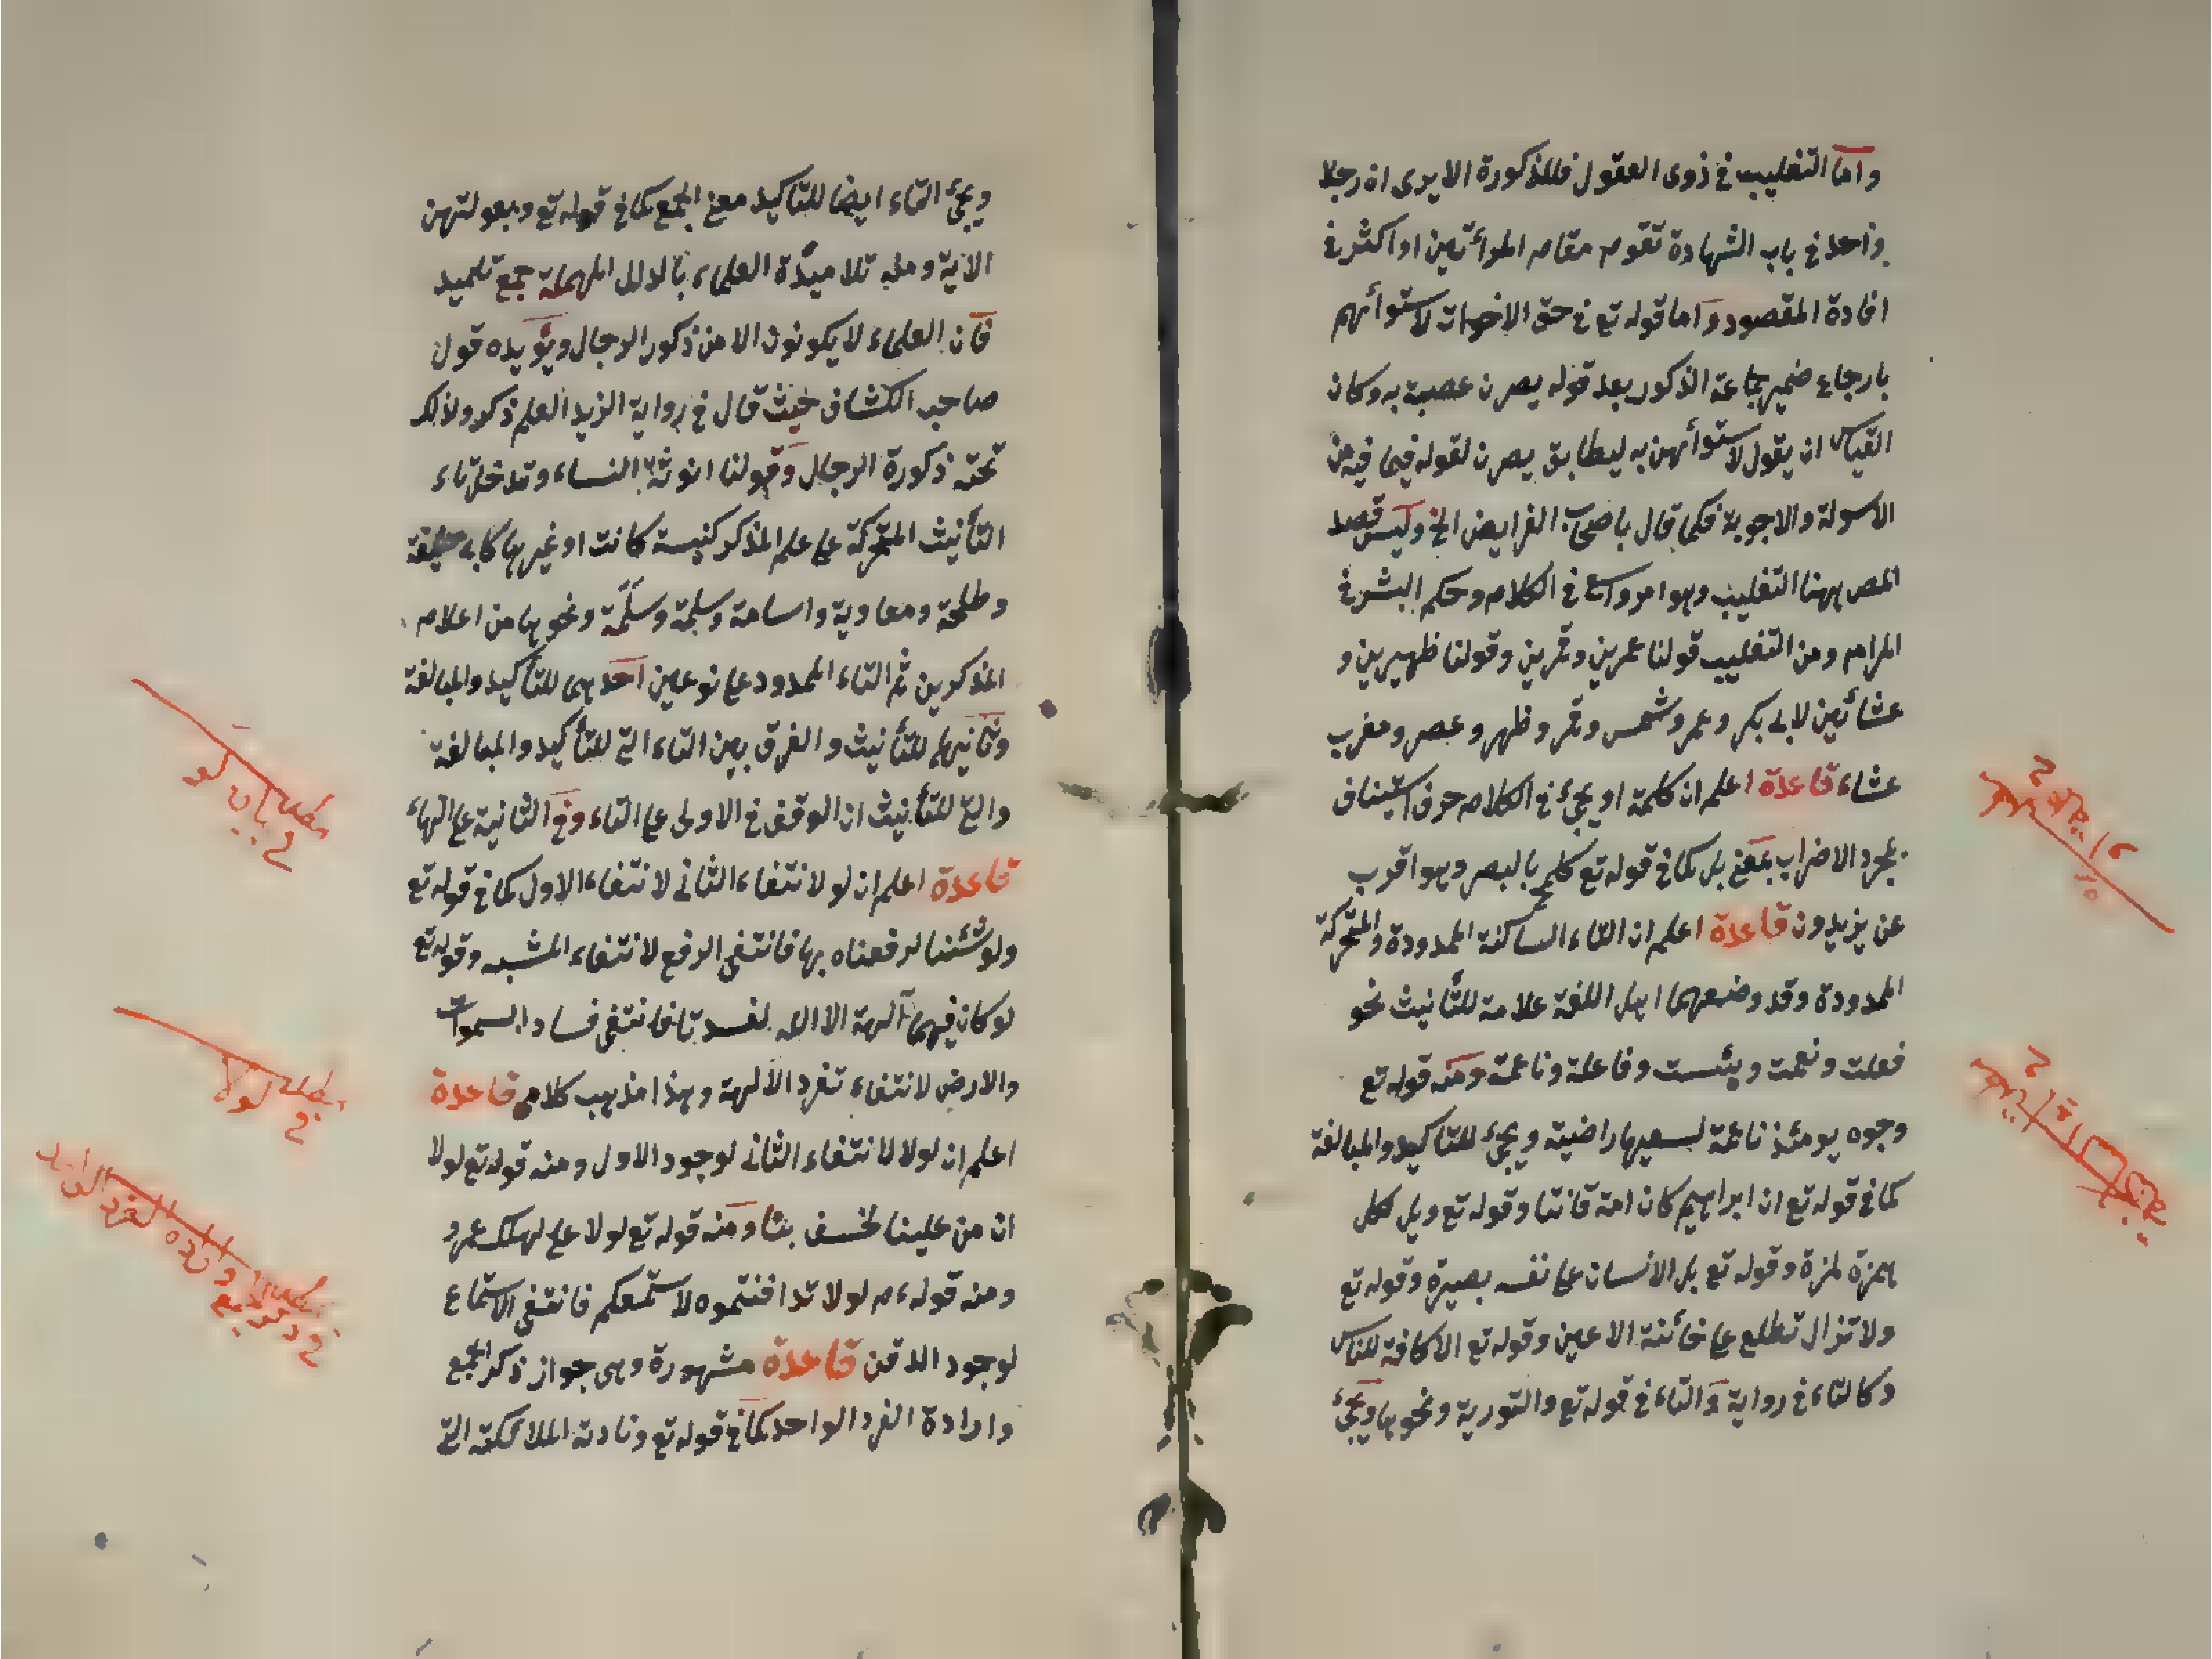 واما التغليب في ذوى العقول فللذكورة الا يرى ان رجلا
واحد في باب الشهادة تقوم مقام امرأتين او اكثر في
افادة المقصود واما قوله تع في حق الاخوات لاستوائهم
بارجاع ضمير جماعة الذكور بعد قوله يصرن عصبة به وكان
القياس ان يقول لاستوائهن به ليطابق يصرن لقوله فيما فيه من
الاسولة والاجوبة فكما قال باصحاب الفرايض الخ وليس قصد
المص ههنا التغليب وهو امر واسع في الكلام وحكم البشر في
المرام ومن التغليب قولنا عمرين وقمرين وقولنا ظهيرين و
عشائين لابى بكر وعمر وشمس وقمر وظهر وعصر ومغرب
عشاء قاعدة اعلم ان كلمة او يجئ في الكلام حرف استيناف
بمجرد الاضراب بمعنى بل كما في قوله تع كلمح بالبصر وهو اقرب
عن يزيدون قاعدة اعلم ان التاء الساكنة الممدودة والمتحركة
الممدودة وقد وضعهما اهل اللغة علامة للتأنيث نحو
فعلت ونعمت وبئست وفاعلة وناعمة ومنه قوله تع
وجوه يومئذ ناعمة لسعيها راضية ويجئ للتاكيد والمبالغة
كما في قوله تع ان ابراهيم كان امة قانتا وقوله تع ويل لكل
همزة لمزة وقوله تع بل الانسان على نفسه بصيرة وقوله تع
ولا تزال تطلع على خائنة الاعين وقوله تع الا كافة للناس
وكالتاء في رواية والتاء في قوله تع والتورية ونحوها ويجئ
ويجئ التاء ايضا للتاكيد معنى الجمع كما في قوله تع وبعولتهن
الاية ومنه تلاميدة العلماء بالدال المهملة جمع تلميد
فان العلماء لا يكونون الا من ذكور الرجال ويؤيده قول
صاحب الكشاف حيث قال في رواية الزيد العلم ذكر ولذلك
تحته ذكورة الرجال وقولنا انوثة النساء وتدخل تاء
التأنيث المتحركة على علم المذكر كنيسة كانت او غيرها كابى حنيفة
وطلحة ومعاوية واسامة وسلمة وسلمة ونحوها من اعلام
المذكرين ثم التاء الممدود على نوعين احدهى للتأكيد والمبالغة
وثانيهما للتأنيث والفرق بين التاء التى للتأكيد والمبالغة
والتى للتأنيث ان الوقف في الاولى على التاء وفي الثانية على الهاء
قاعدة اعلم ان لو لانتفاء الثانى لانتفاء الاول كما في قوله تع
ولو شئنا لرفعناه بها فانتفى الرفع لانتفاء المشيه وقوله تع
لو كان فيهما آلهة الا الله لفسدتا فانتفى فساد السموات
والارض لانتفاء تفرد الالهة وهذا مذهب كلامى قاعدة
اعلم ان لولا لانتفاء الثانى لوجود الاول ومنه قوله تع لولا
ان من علينا لخسف بنا ومنه قوله تع لولا على لهلك عمر و
ومنه قوله ءم لولا تدافنتموه لاستمعكم فانتفى الاستماع
لوجود الدفن قاعدة مشهورة وهى جواز ذكر الجمع
وارادة الفرد الواحد كما في قوله تع ونادته الملائكة التى
مطلب
في بيان لو
مطلب
في لولا
في ذكر الجمع وارادة الفرد الواحد